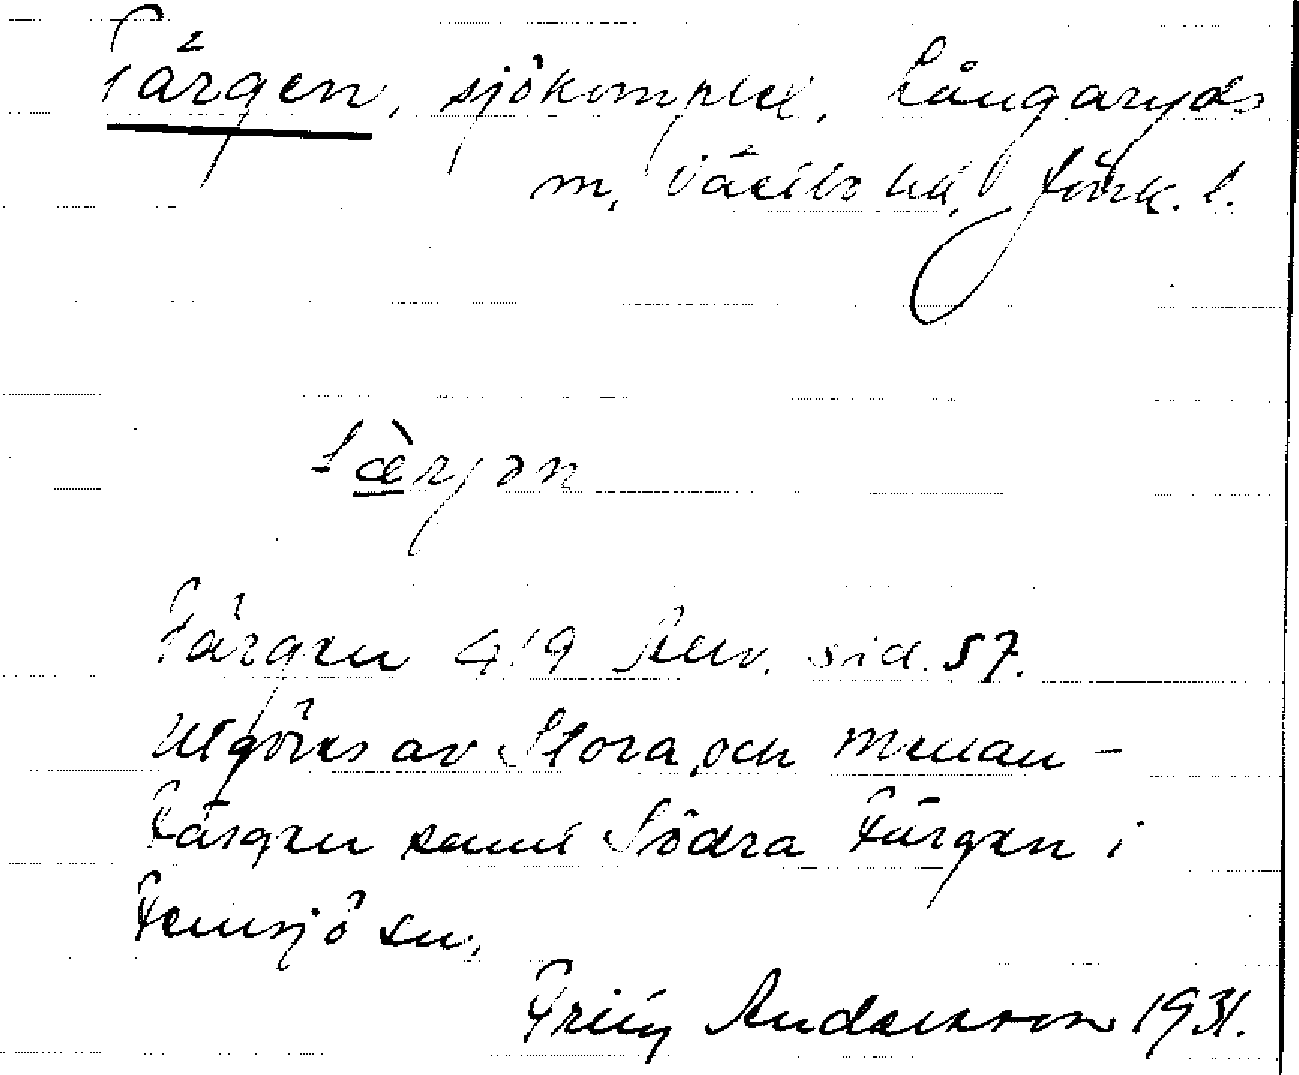 Färgen, sjökomplex, Långaryds
sn, Västbo hd, Jönk. l.
fæ̀rjən
Färgen 419 Strv. sid. 57.
Utgöres av Stora och Mellan-
Färgen samt Södra Färgen i
Femsjö sn.
Fritz Andersson 1931.